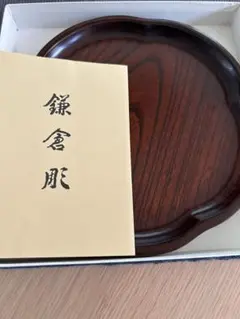 鎌倉彫